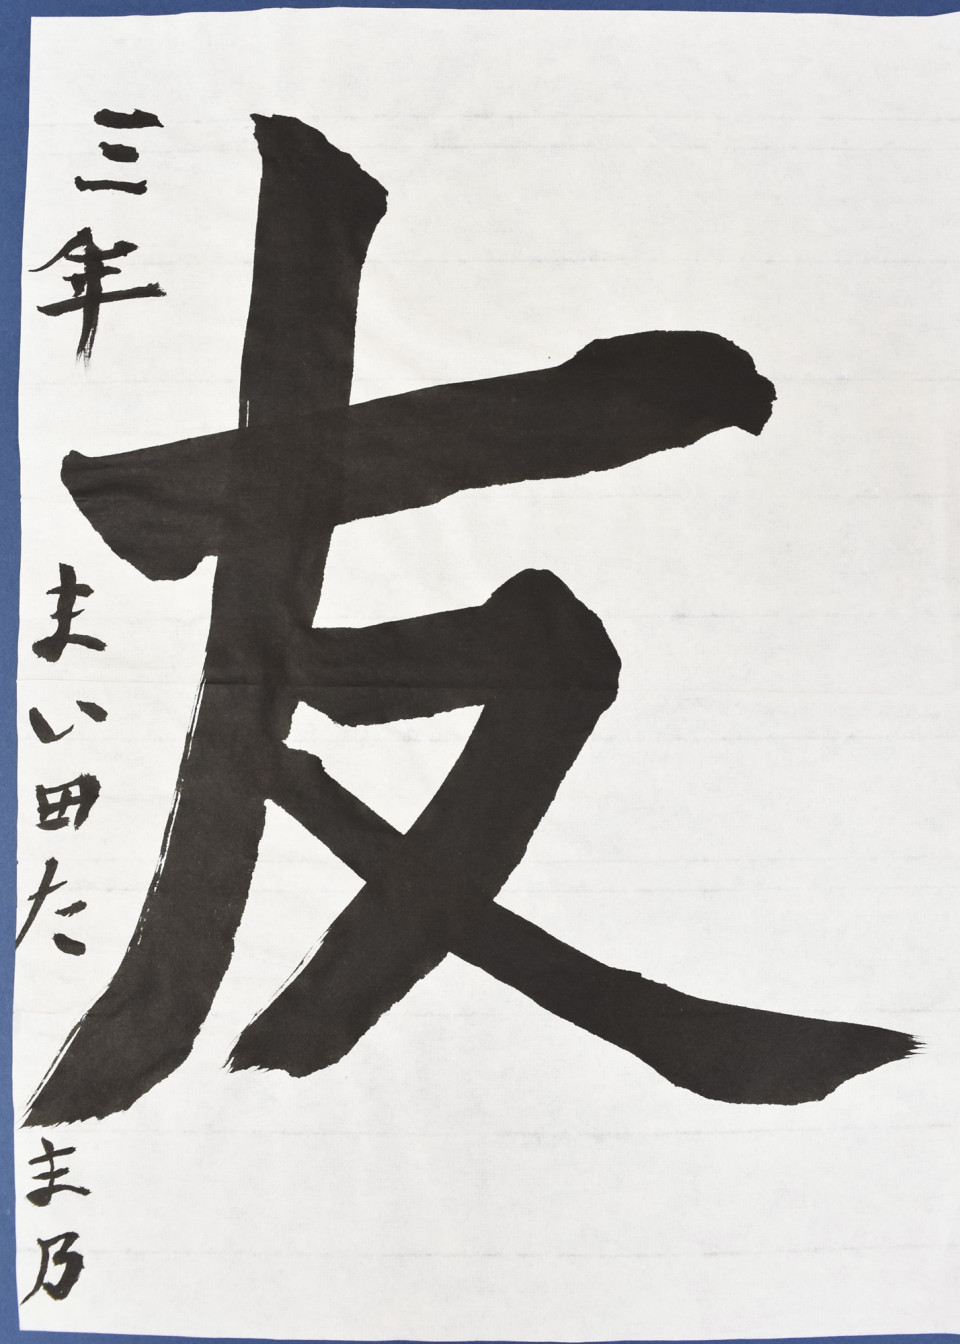 友
三年 まい田たま乃